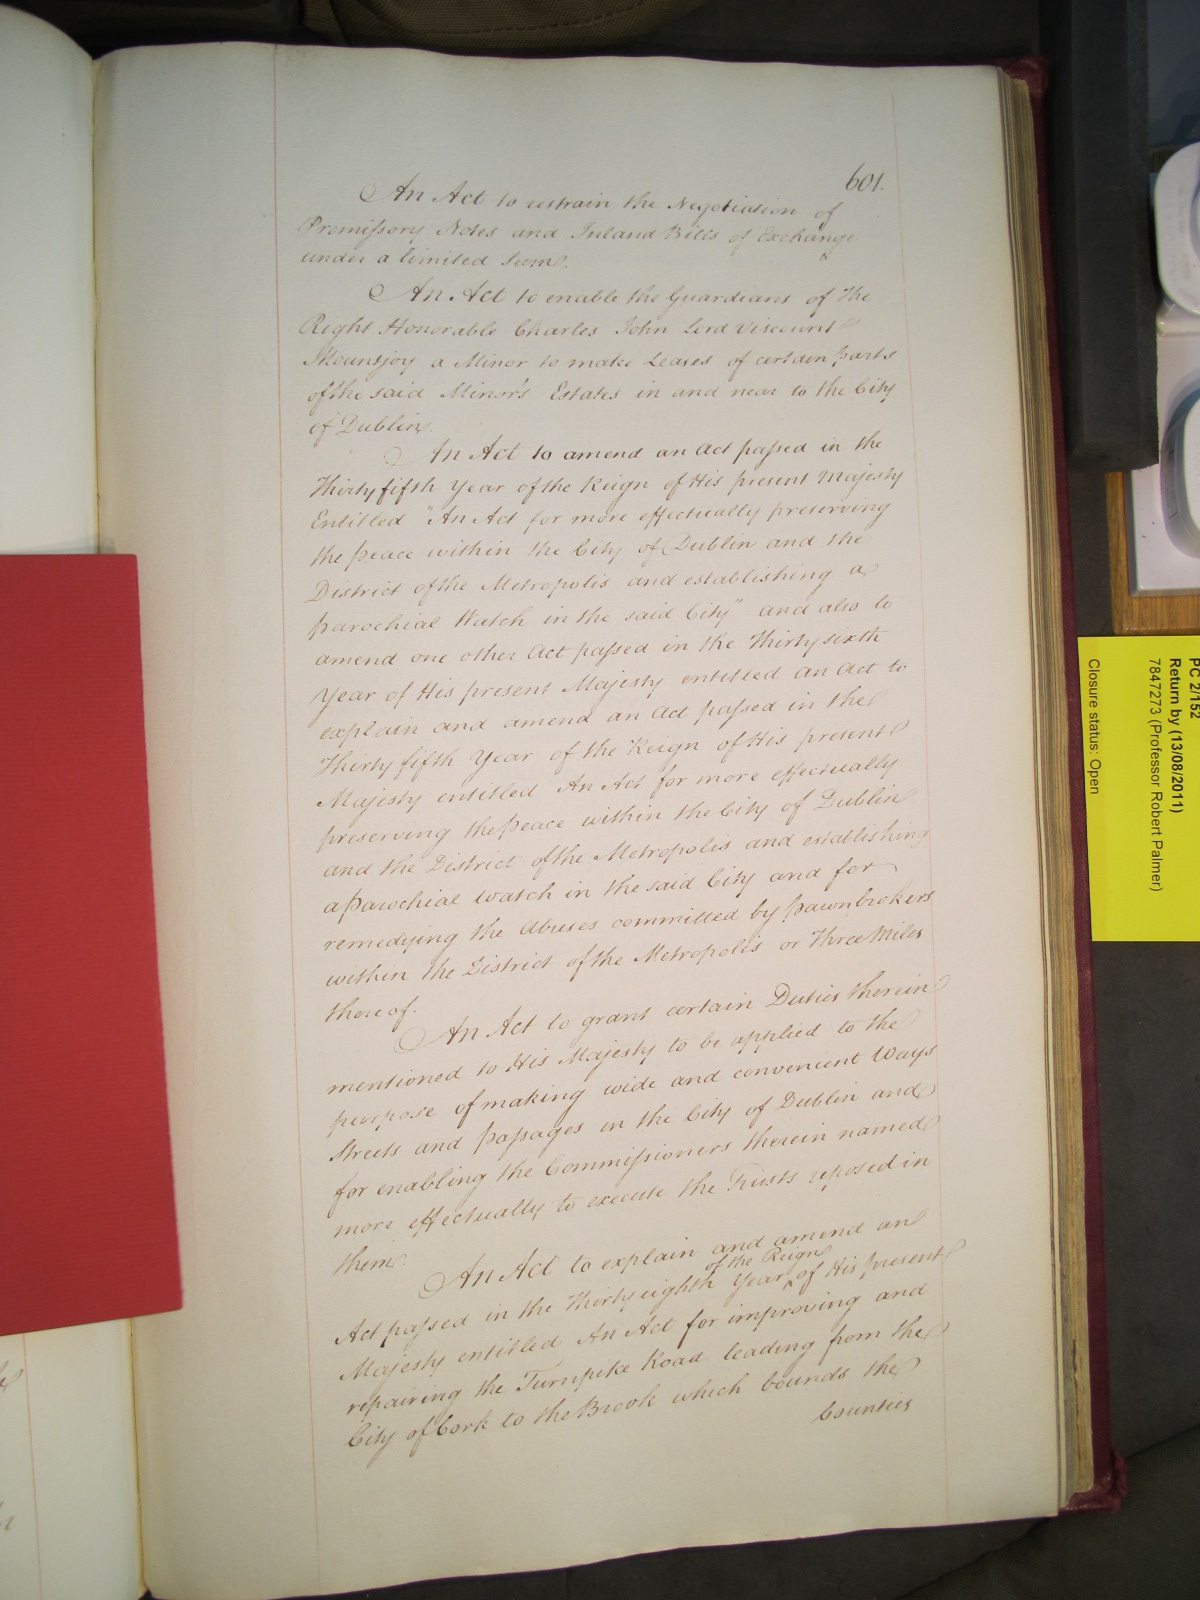 601.
An Act to restrain the Negotiation of
Promiſsory Notes and Inland Bills of Exchange
under a limited Sum.
An Act to enable the Guardians of the
Right Honorable Charles John Lord Viscount
Mountjoy a Minor to make Leases of certain parts
of the said Minor's Estates in and near to the City
of Dublin.
An Act to amend an Act paſsed in the
Thirty fifth Year of the Reign of His present Majesty
Entitled "An Act for more effectually preserving
the peace within the City of Dublin and the
District of the Metropolis and establishing a
parochial Watch in the said City" and also to
amend one other Act paſsed in the Thirty sixth
Year of His present Majesty entitled an Act to
explain and amend an Act paſsed in the
Thirty fifth Year of the Reign of His present
Majesty entitled An Act for more effectually
preserving the peace within the City of Dublin
and the District of the Metropolis and establishing
a parochial Watch in the said City and for
remedying the Abuses committed by pawnbrokers
within the District of the Metropolis or Three Miles
thereof.
An Act to grant certain Duties therein
mentioned to His Majesty to be applied to the
purpose of making wide and convenient Ways
Streets and paſsages in the City of Dublin and
for enabling the Commiſsioners therein named
more effectually to execute the Trusts reposed in
them.
An Act to explain and amend an
Act paſsed in the Thirty eighth Year of the Reign of His present
Majesty entitled An Act for improving and
repairing the Turnpike Road leading from the
City of Cork to the Brook which bounds the
Counties
PC 2/152
Return by (13/08/2011)
7847273 (Professor Robert Palmer)
Closure status: Open